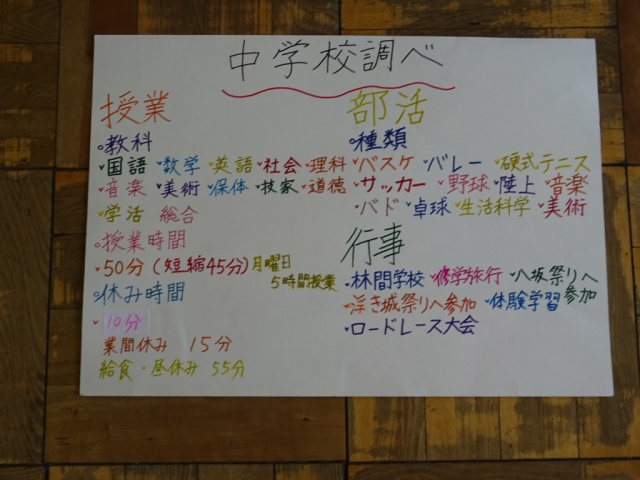 中学校調べ
授業
教科
国語 数学 英語 社会 理科
音楽 美術 保体 技家 道徳
学活 総合
授業時間
50分(短縮45分)月曜日
5時間授業
休み時間
10分
業間休み 15分
給食・昼休み 55分
部活
種類
バスケ バレー 硬式テニス
サッカー 野球 陸上 音楽
バド 卓球 生活科学 美術
行事
林間学校 修学旅行 八坂祭りへ
参加
浮き城祭りへ参加 体験学習
ロードレース大会